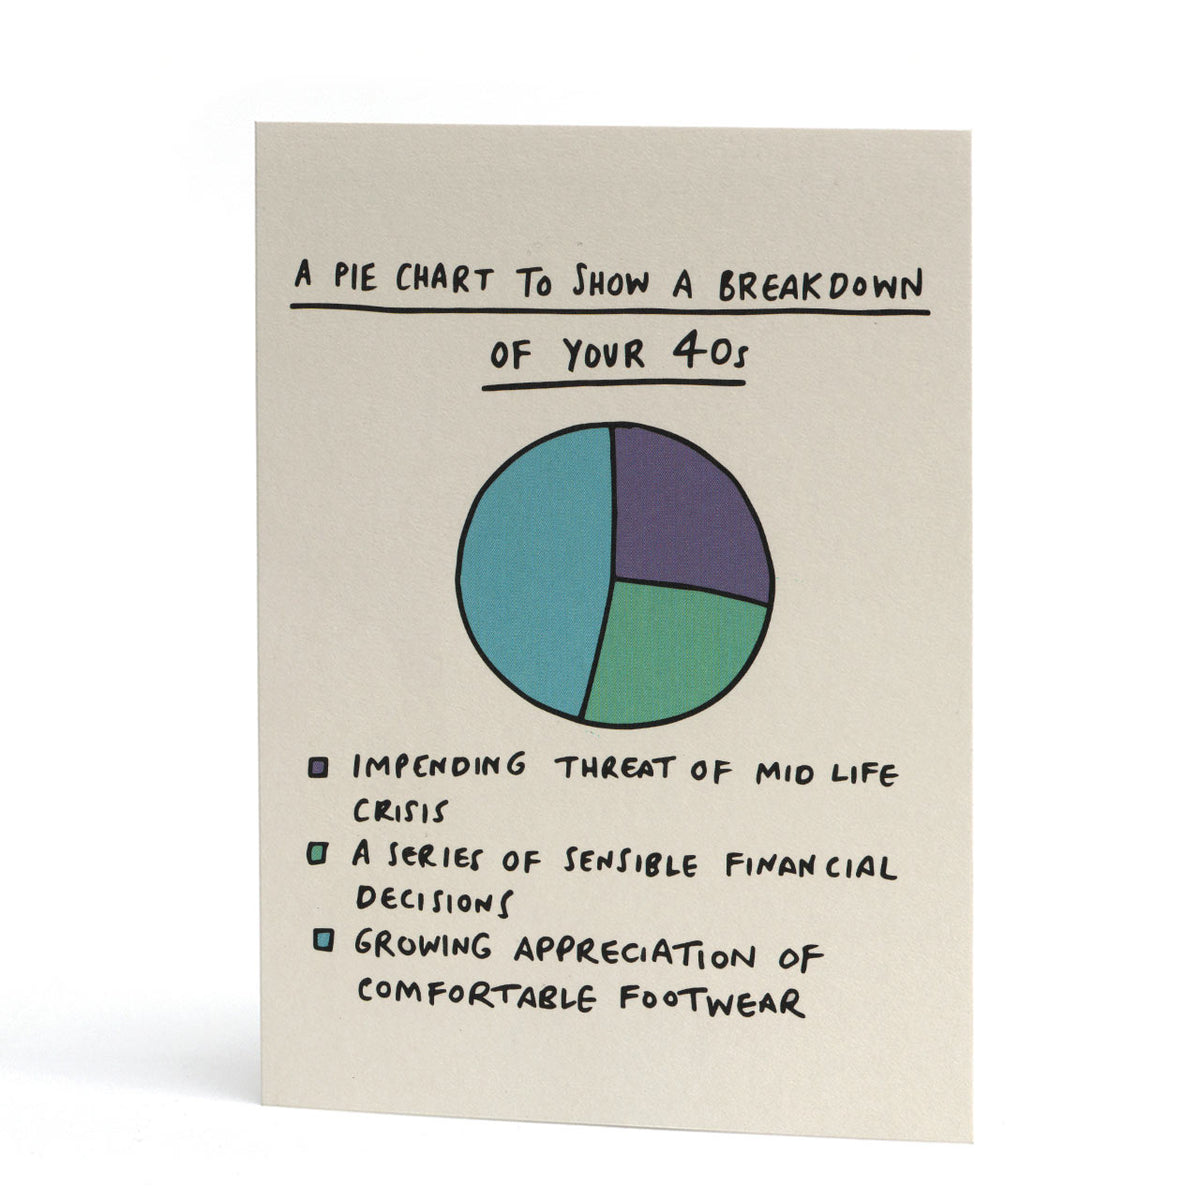 A PIE CHART TO SHOW A BREAKDOWN
OF YOUR 40s
IMPENDING THREAT OF MID LIFE
CRISIS
A SERIES OF SENSIBLE FINANCIAL
DECISIONS
GROWING APPRECIATION OF
COMFORTABLE FOOTWEAR